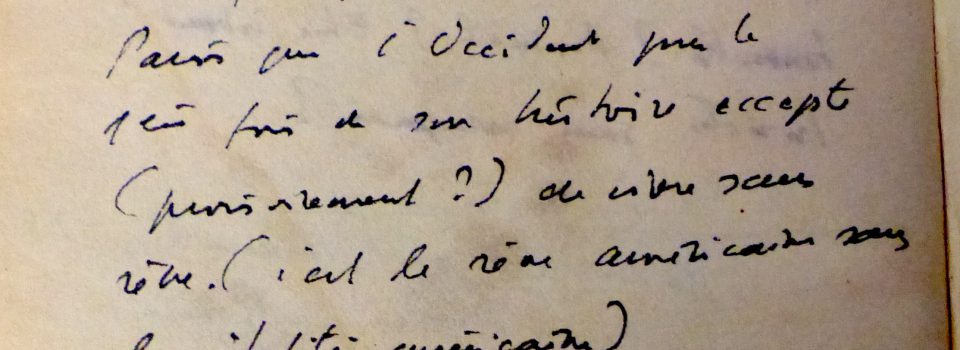 que l'Occident pour la
1ère fois de son histoire accepte
(provisoirement ?) de vivre sans
rêve. (c'est le rêve américain sans
américaine)